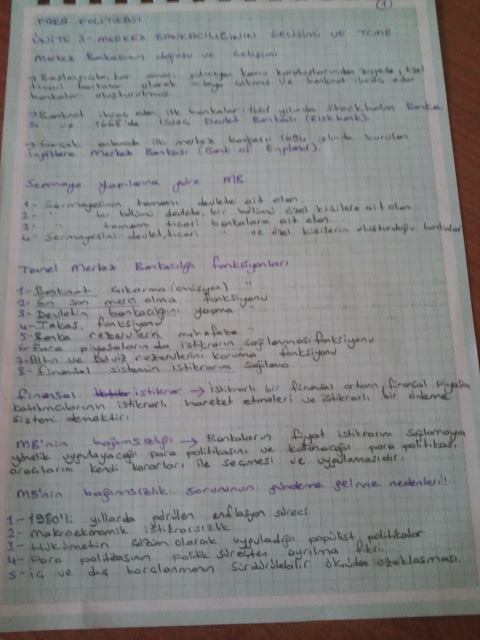 1
PARA POLİTİKASI
ÜNİTE 3- MERKEZ BANKACILIĞININ GELİŞİMİ VE TCMB
Merkez Bankasının doğuşu ve Gelişimi
→ Başlangıçta, kar amacı gütmeyen kamu kuruluşlarından ziyade, özel
ticari bankalar olarak ortaya çıkmış ve banknot ihraç eden
bankalar oluşturulmuş.
→ Banknot ihraç eden ilk bankalar: yılında Stockholm Banka
sı ve 1668'de İsveç Devlet Bankası (Riskbank).
→ Gerçek anlamda ilk merkez bankası 1694 yılında kurulan
İngiltere Merkez Bankası (Bank of England).
Sermaye yapılarına göre MB
1- Sermayesinin tamamı devlete ait olan
2- " bir bölümü devlete, bir bölümü özel kişilere ait olan
3- " tamamı ticari bankalara ait olan
4- Sermayesini devlet, ticari " ve özel kişilerin oluşturduğu bankalar
Temel Merkez Bankacılığı fonksiyonları
1- Banknot çıkarma (emisyon) "
2- En son merci olma fonksiyonu
3- Devletin bankacılığını yapma "
4- Takas fonksiyonu
5- Banka rezervlerini muhafaza "
6- Para piyasalarında istikrarın sağlanması fonksiyonu
7- Altın ve döviz rezervlerini koruma fonksiyonu
8- Finansal sistemin istikrarını sağlama
Finansal istikrar → istikrarlı bir finansal ortam, finansal piyasa
katılımcılarının istikrarlı hareket etmeleri ve istikrarlı bir ödeme
sistemi demektir.
MB'nin bağımsızlığı → Bankaların fiyat istikrarını sağlamaya
yönelik uygulayacağı para politikasını ve kullanacağı para politikası
araçlarını kendi kararları ile seçmesi ve uygulamasıdır.
MB'nin bağımsızlık sorununun gündeme gelme nedenleri!
1- 1980'li yıllarda görülen enflasyon süreci
2- Makroekonomik istikrarsızlık
3- Hükümetin çözüm olarak uyguladığı popülist politikalar
4- Para politikasının politik süreçten ayrılma fikri.
5- iç ve dış borçlanmanın sürdürülebilir ölçüden uzaklaşması.